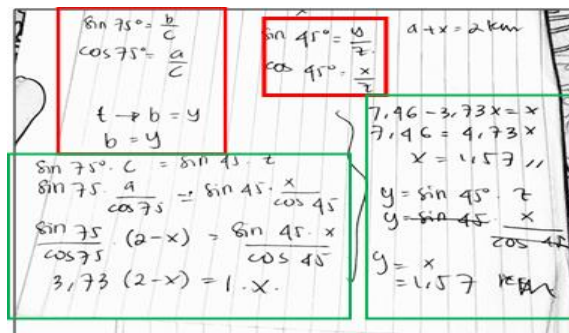 sin 75° = b/c
cos 75° = a/c
t → b = y
b = y
sin 45° = y/z
cos 45° = x/z
a + x = 2 km
sin 75°. c = sin 45. z
sin 75. a/cos 75 = sin 45. x/cos 45
sin 75/cos 75 . (2-x) = sin 45. x/cos 45
3,73 (2-x) = 1. x.
7,46 - 3,73x = x
7,46 = 4,73x
x = 1,57 //
y = sin 45°. z
y = sin 45 x/cos 45
y = x
= 1,57 km